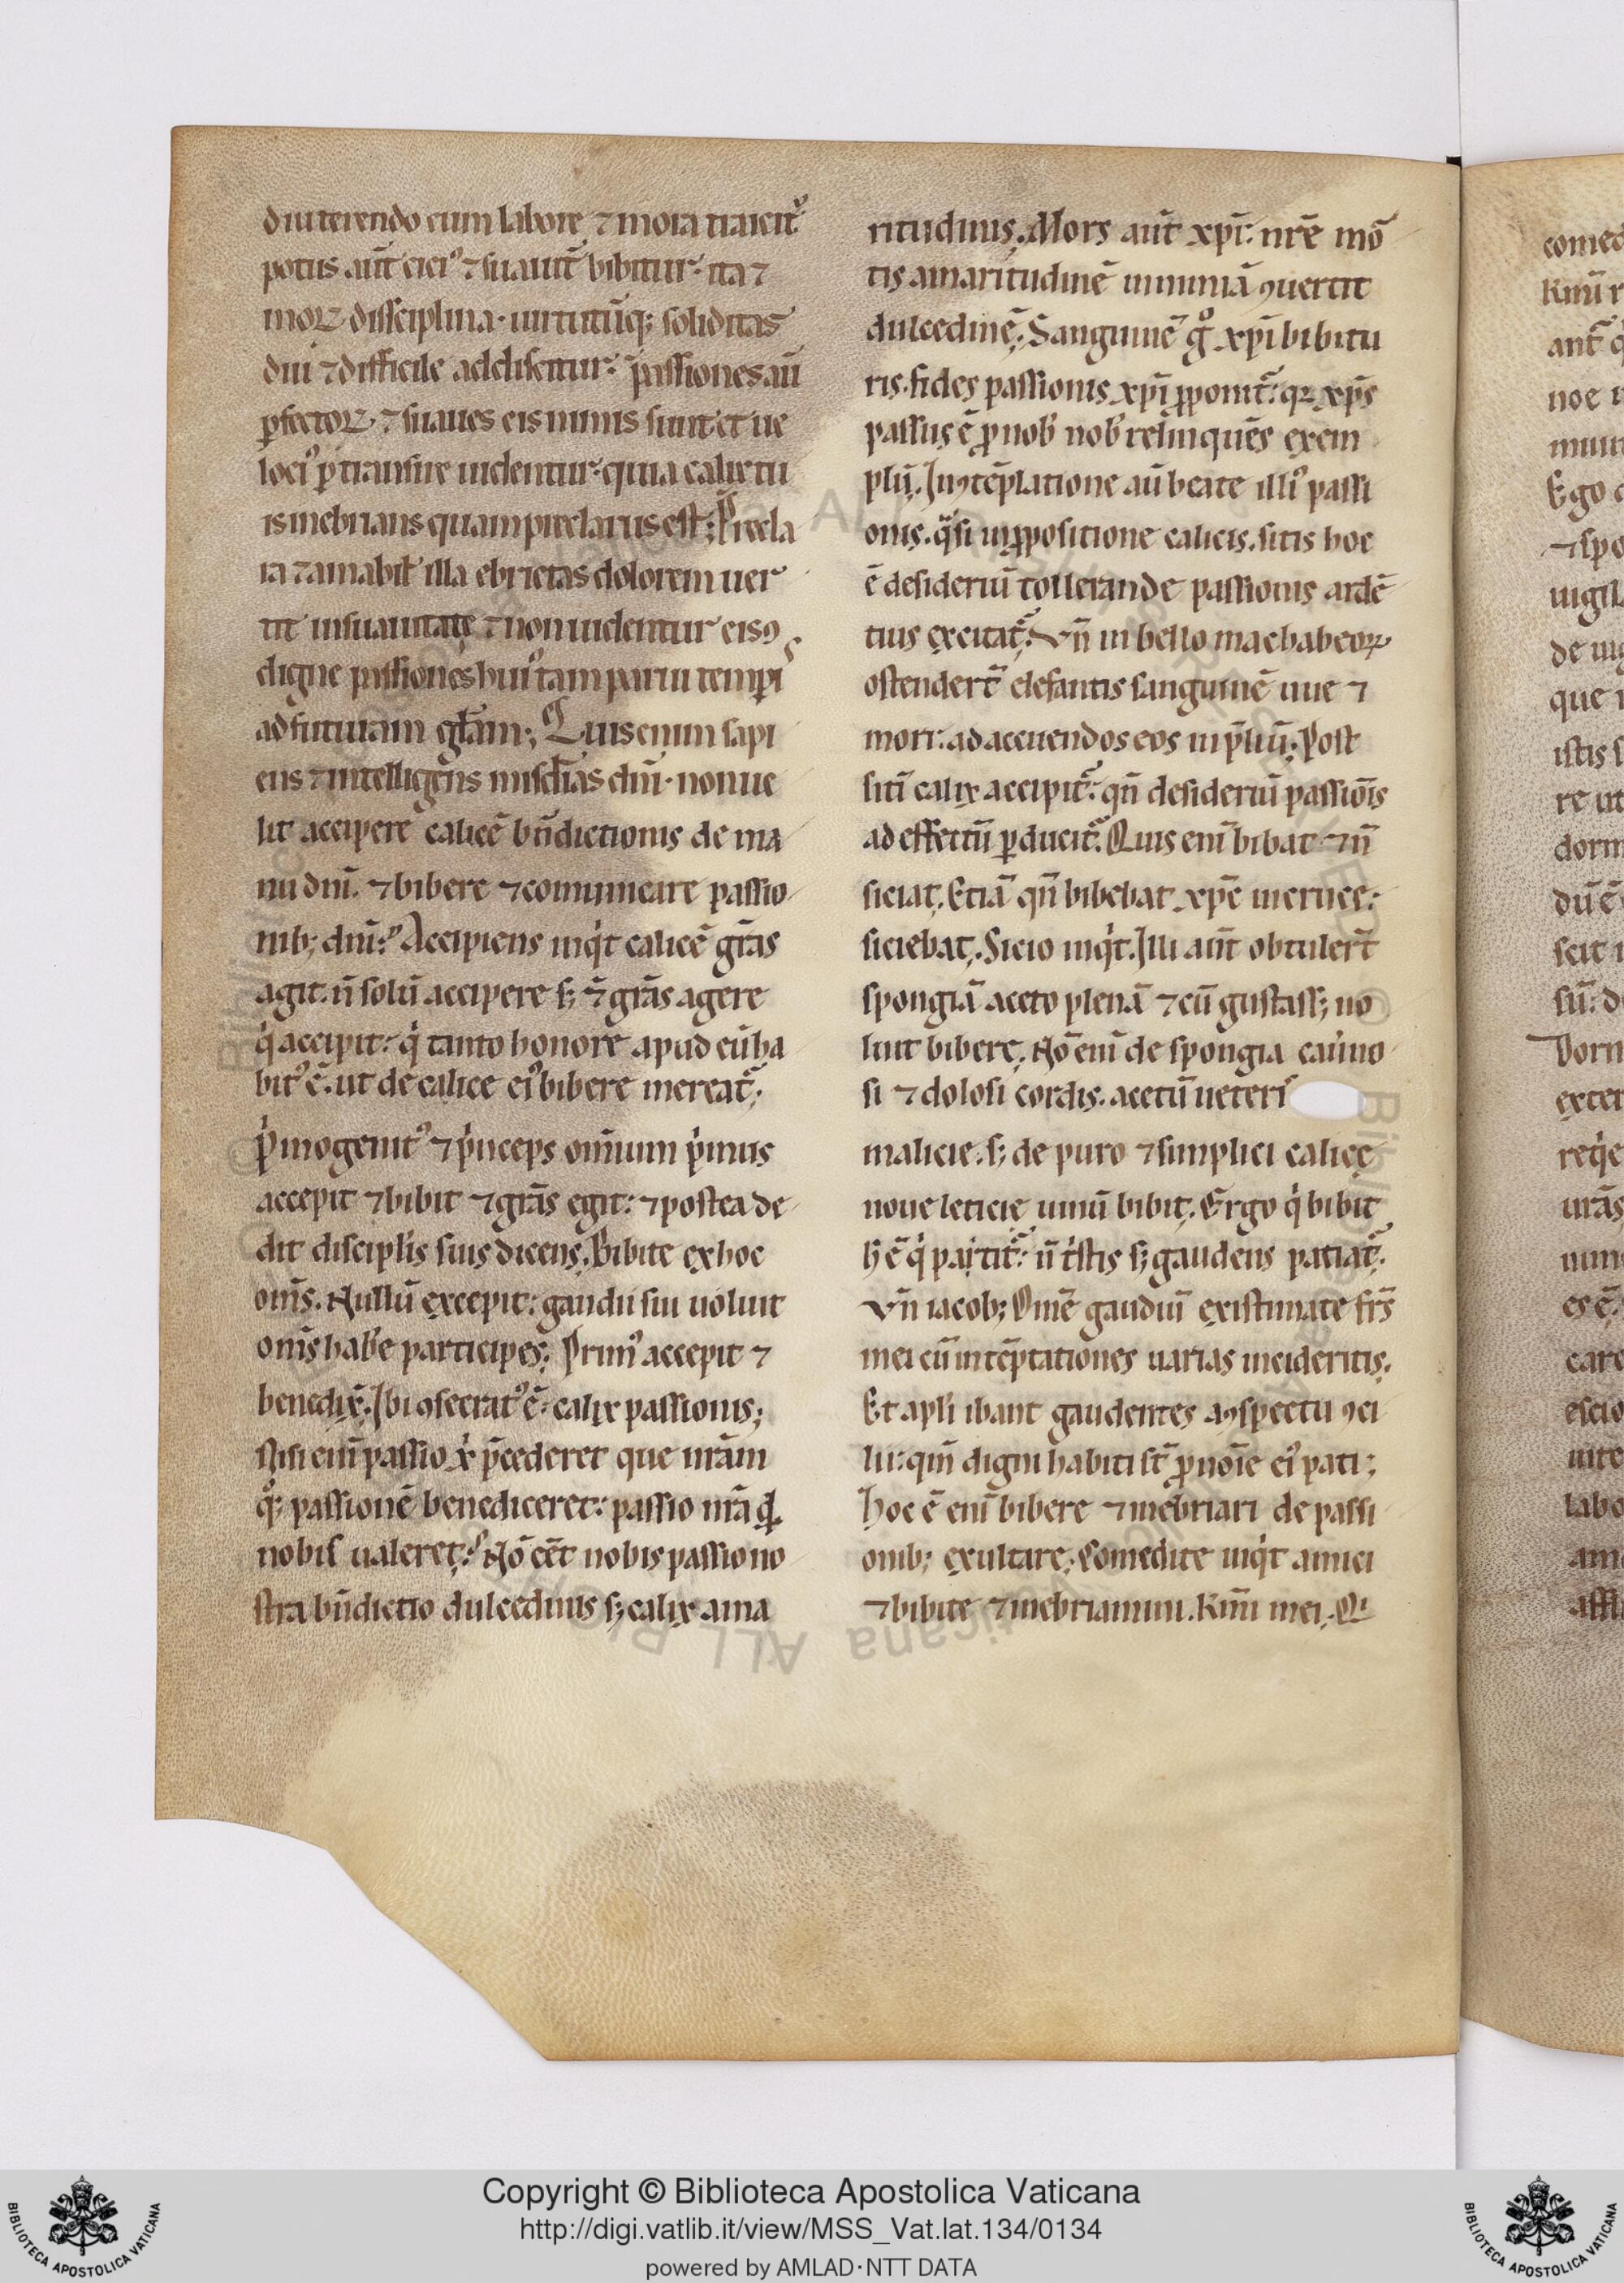 diu terendo cum labore ⁊ mora traicit᷒
potus aut̄ citi᷒ ⁊ suauit̄ bibitur· ita ⁊
moꝝ disciplina· uirtutūq; soliditas
diu ⁊ difficile addiscitur· passiones aū
ꝑfectoꝝ· ⁊ suaues eis nimis sunt et ue
loci᷒ ꝑtransire uidentur· quia calix tu
is inebrians quam preclarus est; Precla
ra ⁊ amabil' illa ebrietas dolorem uer
tit in suauitatē ⁊ non uidentur eis ꝯ
digne passiones hui᷒ tam parui tempis
ad futuram gl̄am; Quis enim sapi
ens ⁊ intelligens misd̄ias dn̄i· non ue
lit accipere calicē bn̄dictionis de ma
nu dn̄i. ⁊ bibere ⁊ comunicare passio
nib; dn̄i? Accipiens inq't calicē gr̄as
agit. n̄ solū accipere s; ⁊ gr̄as agere
q' accipit· q' tanto honore apud eū ha
bit᷒ ē. ut de calice ei᷒ bibere mereat̄;
p'mogenit᷒ ⁊ p'nceps om̄ium p'mus
accepit ⁊ bibit ⁊ gr̄as egit: ⁊ postea de
dit discipl'is suis dicens. Bibite ex hoc
om̄s. Nullū excepit: gaudii sui uoluit
om̄s hab'e participes. Prim᷒ accepit ⁊
benedix̄. Ibi ꝯsecrat᷒ ē calix passionis;
Nisi eni passio x' p̄cederet que nr̄am
q°; passionē benediceret: passio nr̄a qd
nobis ualeret? Nō eēt nobis passio no
stra bn̄dictio dulcedinis s; calix ama
ritudinis. Mors aut̄ xp̄i· nr̄e mō
tis amaritudinē nimiā ꝯuertit
dulcedinē; Sanguinē g° xp̄i bibitu
ris. fides passionis xp̄i ꝓponit̄: q2 xp̄s
passus ē ꝓ nob' nob' relinquēs exem
plū. In ꝯtēplatione aū beate illi᷒ passi
onis. q̄si in ꝓpositione calicis. sitis hoc
ē desideriū tollerande passionis ardē
tius excitat̄. Vn̄ in bello machabeoꝝ
ostendert̄ elefantis sanguinē uue ⁊
mori: ad accuendos eos in p̄liū; Post
sitī calix accipit̄: qn̄ desideriū passiōis
ad effectū ꝑducit̄. Quis eni bibat ⁊ n̄
siciat. Etiā qn̄ bibebat xp̄c in cruce:
siciebat. Sicio inq't. Illi aut̄ obtulert̄
spongiā aceto plenā ⁊ cū gustass; no
luit bibere. Nō eni de spongia cauno
si ⁊ dolosi cordis. acetū ueteris
malicie. s; de puro ⁊ simplici calice
noue leticie uinū bibit. Ergo q' bibit
h̄ ē q' patit̄: n̄ t'stis s; gaudens patiat̄.
Vn̄ iacob; Om̄e gaudiū existimate fr̄s
mei cū in tēptationes uarias incideritis.
Et apl'i ibant gaudentes a ꝯspectu ꝯci
lii: qm̄ digni habiti st̄ ꝓ noīe ei᷒ pati;
Hoc ē eni bibere ⁊ inebriari de passi
onib; exultare. Comedite inq't amici
⁊ bibite ⁊ inebriamini. Kmī mei. Qi
Copyright © Biblioteca Apostolica Vaticana
http://digi.vatlib.it/view/MSS_Vat.lat.134/0134
powered by AMLAD·NTT DATA